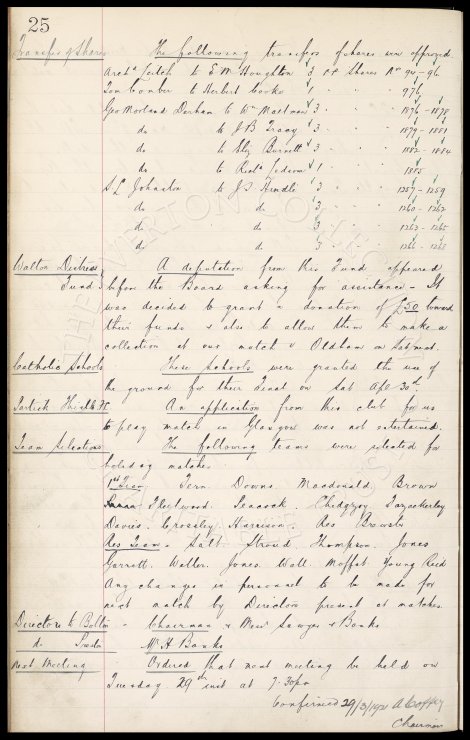 25
Transfer of Shares The following transfers of shares were approved.
Arch'd Leitch to E W Houghton 3 Shares No 94-96
Tom Comber to Herbert Cooke 1 " " 976
Geo Morland Derham to Wm 3 " " 1876-1878
do to J B Tracy 3 " " 1879-1881
do to Eliz Burnett 3 " " 1882-1884
do to Rest Ledson 1 " " 1885
S L Johnston to J S Hindle 3 " " 1257-1259
do do 3 " " 1260-1262
do do 3 " " 1263-1265
do do 3 " " 1266-1268
Walton Distress A deputation from this Fund appeared
Fund before the Board asking for assistance - It
was decided to grant a donation of £50 toward
their funds & also to allow them to make a
collection at our match v Oldham on Sat next.
Catholic Schools These schools were granted the use of
the ground for their Final on Sat Apl 30th
Partick Thistle FC An application from this club for us
to play match in Glasgow was not entertained.
Team Selections The following teams were selected for
holiday matches.
1st Team Fern Downs. Macdonald. Brown
Fleetwood. Peacock. Chedgzoy Fazackerley
Davies. Crossley Harrison. Res Brewster
Res Team - Salt Stroud Thompson. Jones
Garrett. Waller. Jones. Wall. Moffat Young Reid
Any changes in personnel to be made for
next match by Directors present at matches.
Directors to Bolton - Chairman & Messrs Sawyer & Banks
do Mr H Banks
Next Meeting Ordered that next meeting be held on
Tuesday 29th inst at 7.30pm
Confirmed 29/3/1921 A Coffey
Chairman
THE EVERTON COLLECTION